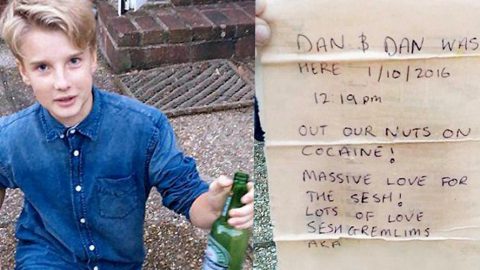 DAN & DAN WAS
HERE 1/10/2016
12:19pm
OUT OUR NUTS ON
COCAINE!
MASSIVE LOVE FOR
THE SESH!
LOTS OF LOVE
SESH GREMLIMS
AKA